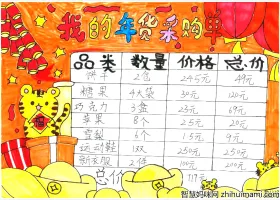 我的年货采购单
品类 数量 价格 总价
饼干 2盒 24.5元 49元
糖果 4大袋 30元 120元
巧克力 3盒 23元 69元
苹果 8个 2.5元 20元
雪梨 6个 1.5元 9元
运动鞋 1双 250元 250元
新衣服 2件 100元 200元
总价 717元
智慧妈咪网 zhihuimami.com